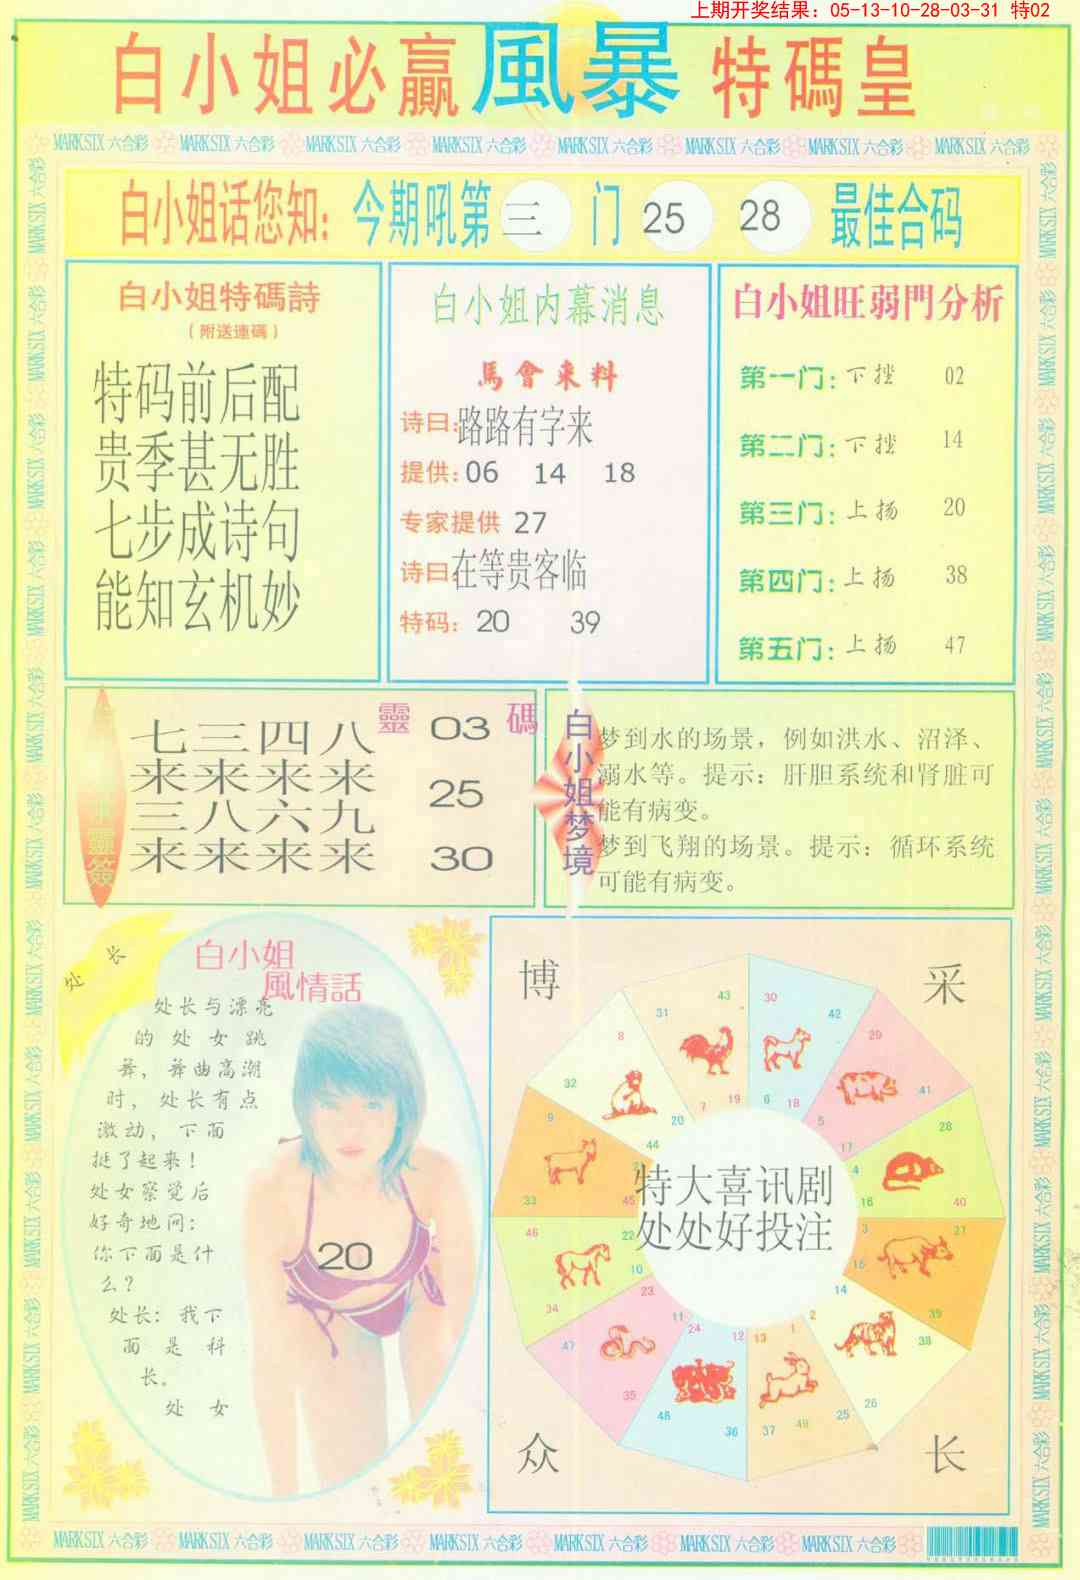 上期开奖结果：05-13-10-28-03-31 特02
白小姐必赢風暴特碼皇
MARK SIX 六合彩 MARK SIX 六合彩 MARK SIX 六合彩 MARK SIX 六合彩 MARK SIX 六合彩 MARK SIX 六合彩 MARK SIX 六合彩 MARK SIX 六合彩
白小姐话您知：今期吼第三门 25 28 最佳合码
白小姐特碼詩
（附送連碼）
特码前后配
贵季甚无胜
七步成诗句
能知玄机妙
白小姐内幕消息
馬會来料
诗曰：路路有字来
提供：06 14 18
专家提供 27
诗曰：在等贵客临
特码：20 39
白小姐旺弱門分析
第一门：下挫 02
第二门：下挫 14
第三门：上扬 20
第四门：上扬 38
第五门：上扬 47
靈簽
七三四八
来来来来
三八六九
来来来来
靈碼
03
25
30
白小姐梦境
梦到水的场景，例如洪水、沼泽、
溺水等。提示：肝胆系统和肾脏可
能有病变。
梦到飞翔的场景。提示：循环系统
可能有病变。
处长
白小姐
風情話
处长与漂亮
的处女跳
舞，舞曲高潮
时，处长有点
激动，下面
挺了起来！
处女察觉后
好奇地问：
你下面是什
么？
处长：我下
面是科
长。
处女
20
博
采
众
长
特大喜讯剧
处处好投注
43 31 7 19
30 42 6 18
29 41 5 17
28 40 4 16
27 39 3 15
38 26 14 2
1 13 25 37 49
12 24 36 48
11 23 35 47
10 22 34 46
9 33 45
8 20 32 44
MARK SIX 六合彩 MARK SIX 六合彩 MARK SIX 六合彩 MARK SIX 六合彩 MARK SIX 六合彩 MARK SIX 六合彩 MARK SIX 六合彩